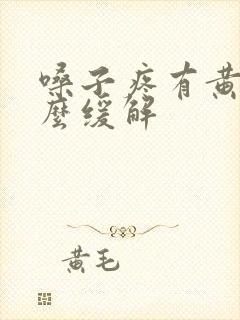 嗓子疼有黄
麼缓解
黄毛